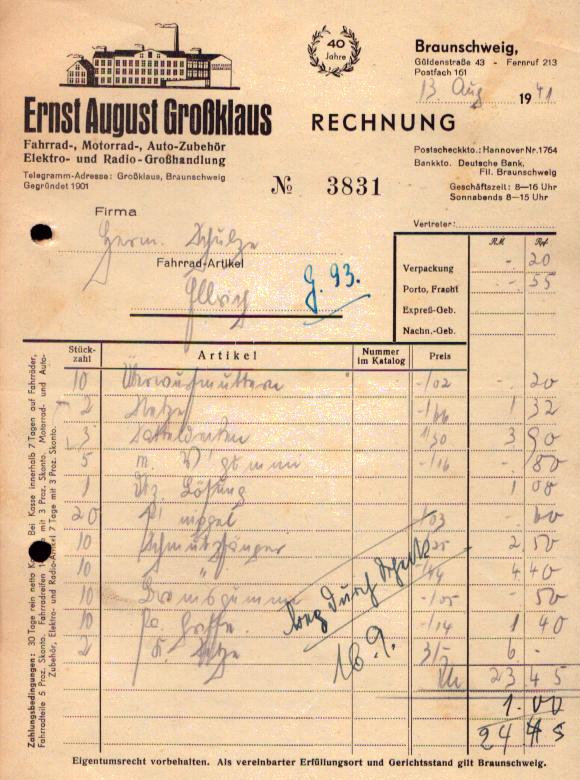 40
Jahre
Braunschweig,
Güldenstraße 43 - Fernruf 213
Postfach 161
13 Aug 1941
Ernst August Großklaus
RECHNUNG
Fahrrad-, Motorrad-, Auto-Zubehör
Elektro- und Radio-Großhandlung
Telegramm-Adresse: Großklaus, Braunschweig
Gegründet 1901
№ 3831
Postscheckkto.: Hannover Nr. 1764
Bankkto. Deutsche Bank,
Fil. Braunschweig
Geschäftszeit: 8—16 Uhr
Sonnabends 8—15 Uhr
Firma
Herm. Schulze
Fahrrad-Artikel
Ellrich
g. 93.
Vertreter:
RM Rpf
Verpackung -. 20
Porto, Fracht -. 55
Expreß-Geb.
Nachn.-Geb.
Stück-
zahl
Artikel
Nummer
im Katalog
Preis
10 Überwurfmuttern -/02 -. 20
2 Netze -/66 1 32
3 Satteldecken 1/30 3 90
5 -/16 -. 80
1 Lösung 1 00
20 nippel /03 - 60
10 Schmutzfänger 25 2.50
10 " -/44 4.40
10 Bremsgummi -/05 -. 50
10 -/14 1 40
2 3/- 6 -
23 45
1.00
24 45
durch
16.9.
Zahlungsbedingungen: 30 Tage rein netto Bei Kasse innerhalb 7 Tagen auf Fahrräder,
Fahrradteile 5 Proz. Skonto. Fahrradreifen mit 3 Proz. Skonto. Motorrad- und Auto-
Zubehör, Elektro- und Radio-Artikel 7 Tage mit 3 Proz. Skonto.
Eigentumsrecht vorbehalten. Als vereinbarter Erfüllungsort und Gerichtsstand gilt Braunschweig.